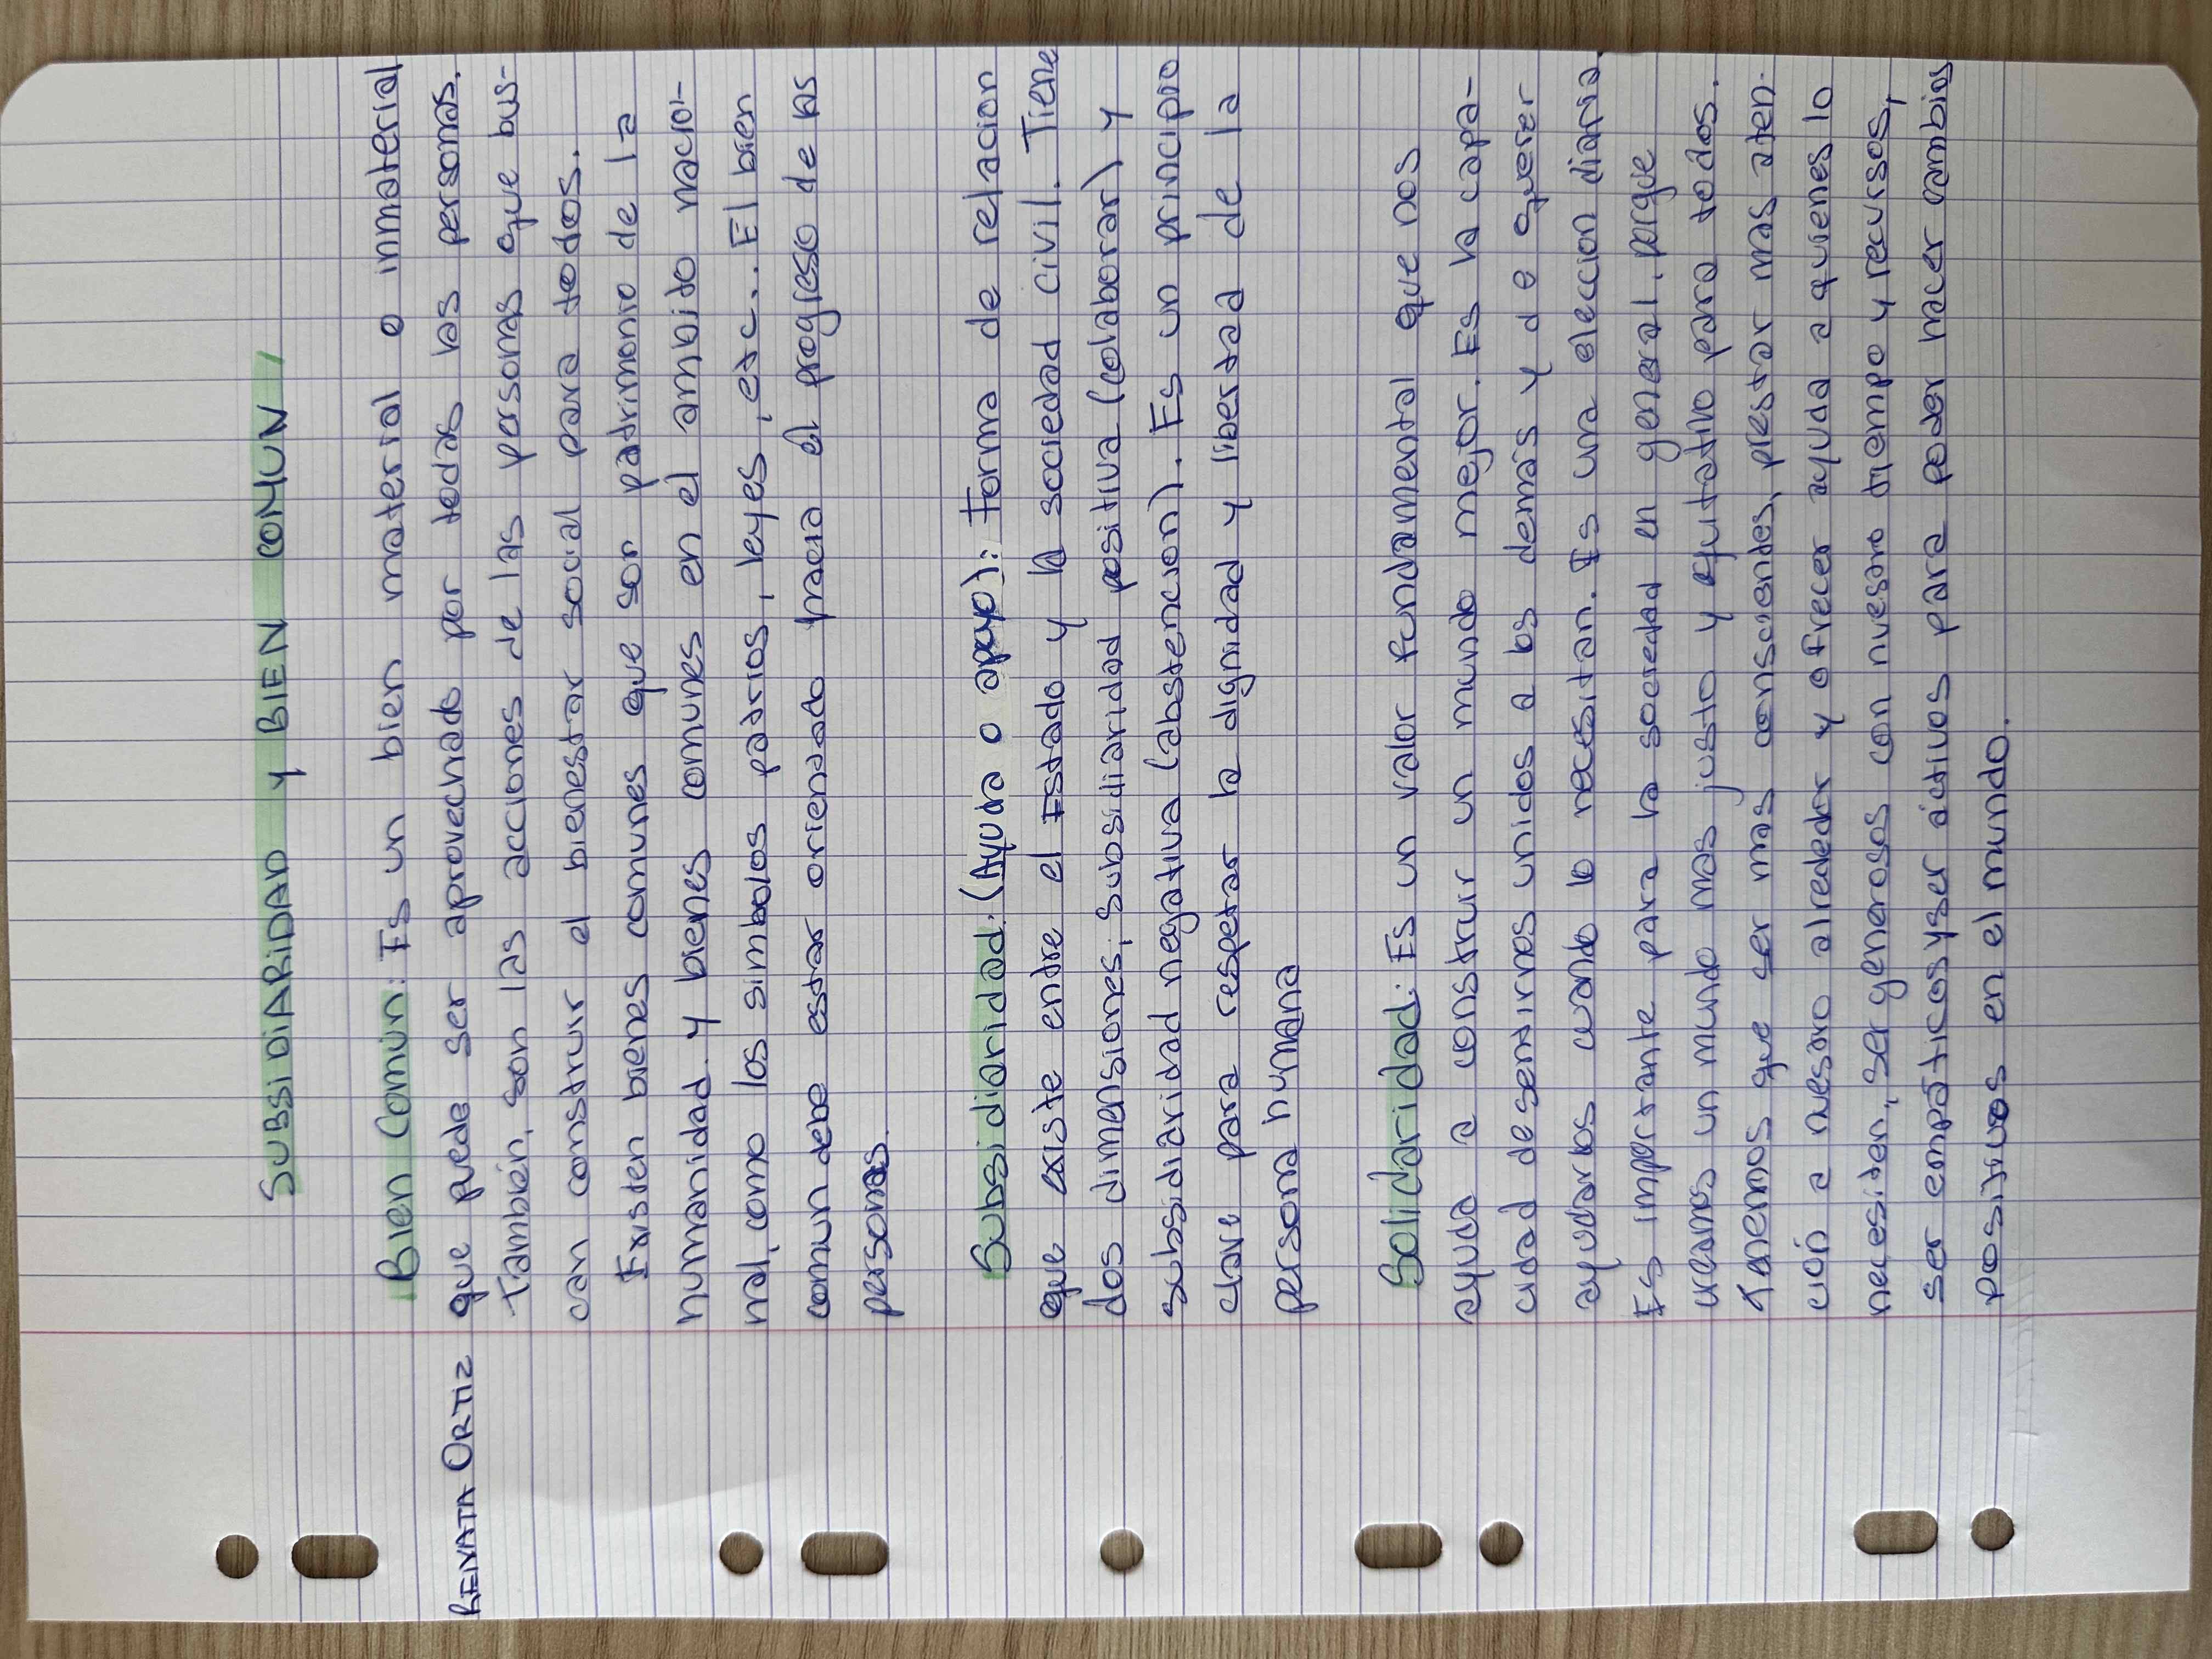 SUBSIDIARIDAD y BIEN COMUN
Bien Común: Es un bien material o inmaterial
RENATA ORTIZ que puede ser aprovechado por todas las personas.
También, son las acciones de las personas que bus-
can construir el bienestar social para todos.
Existen bienes comunes que son patrimonio de la
humanidad y bienes comunes en el ambito nacio-
nal, como los simbolos patrios, leyes, etc.. El bien
comun debe estar orientado hacia el progreso de las
personas.
Subsidiaridad: (Ayuda o apoyo): Forma de relacion
que existe entre el Estado y la sociedad civil. Tiene
dos dimensiones; subsidiaridad positiva (colaborar) y
subsidiaridad negativa (abstencion). Es un principio
clave para respetar la dignidad y libertad de la
persona humana
Solidaridad: Es un valor fundamental que nos
ayuda a construir un mundo mejor. Es la capa-
cidad de sentirnos unidos a los demás y de querer
ayudarlos cuando lo necesitan. Es una eleccion diaria.
Es importante para la sociedad en general, porque
creamos un mundo mas justo y equitativo para todos.
Tenemos que ser mas conscientes, prestar mas aten-
ción a nuestro alrededor y ofrecer ayuda a quienes lo
necesiten, ser generosos con nuestro tiempo y recursos,
ser empáticos y ser activos para poder hacer cambios
positivos en el mundo.